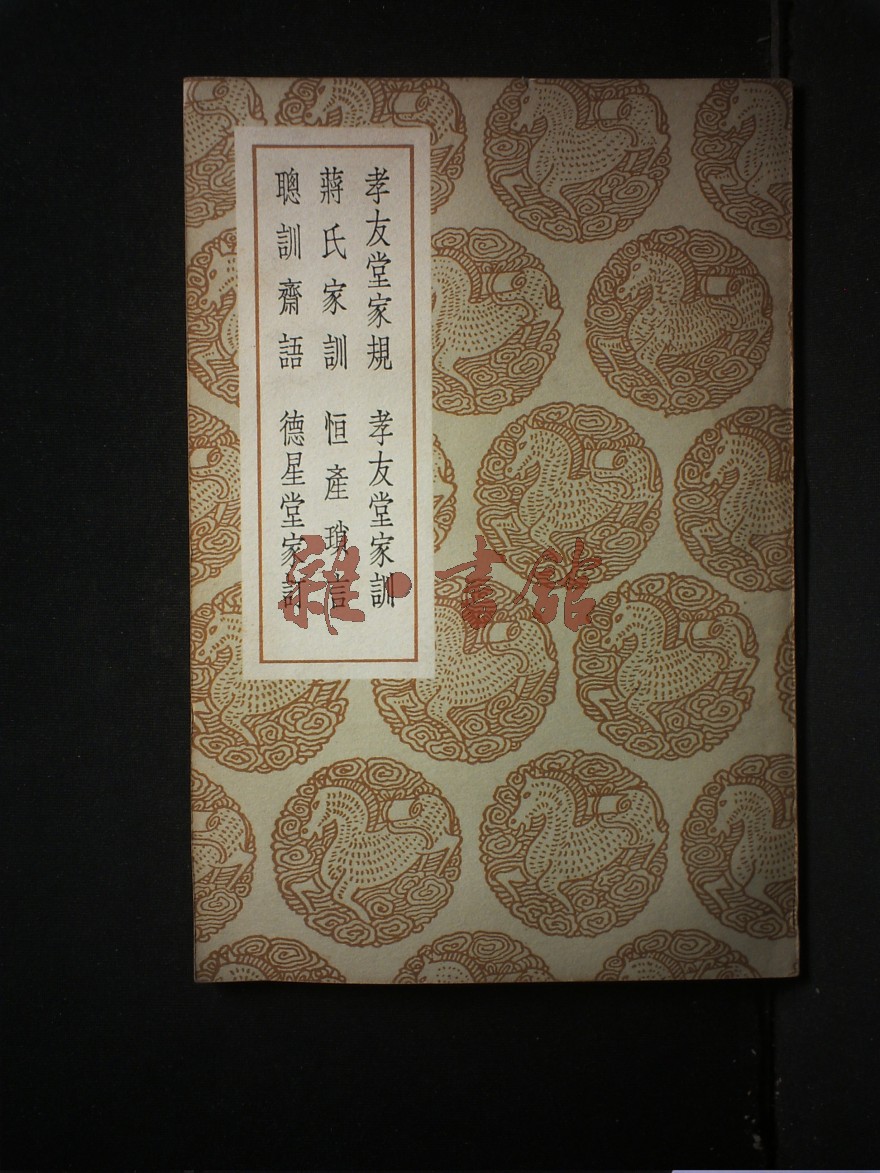 孝友堂家規 孝友堂家訓
蔣氏家訓 恒產瑣言
聰訓齋語 德星堂家訂
雜·書館